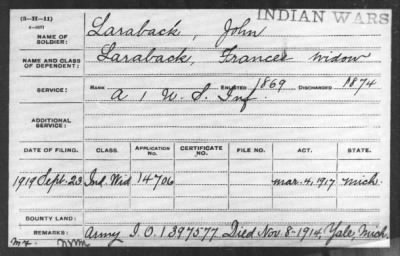 (3-II-11)
INDIAN WARS
NAME OF SOLDIER: Laraback, John
NAME AND CLASS OF DEPENDENT: Laraback, Frances widow
SERVICE: RANK ENLISTED 1869 DISCHARGED 1874
A 1 U.S. Inf.
ADDITIONAL SERVICE:
DATE OF FILING. CLASS. APPLICATION No. CERTIFICATE No. FILE No. ACT. STATE.
1919 Sept. 23 Ind. Wid 14706 mar. 4, 1917 mich.
BOUNTY LAND:
REMARKS: Army I.O. 1397577 Died Nov. 8-1914, Yale, Mich.